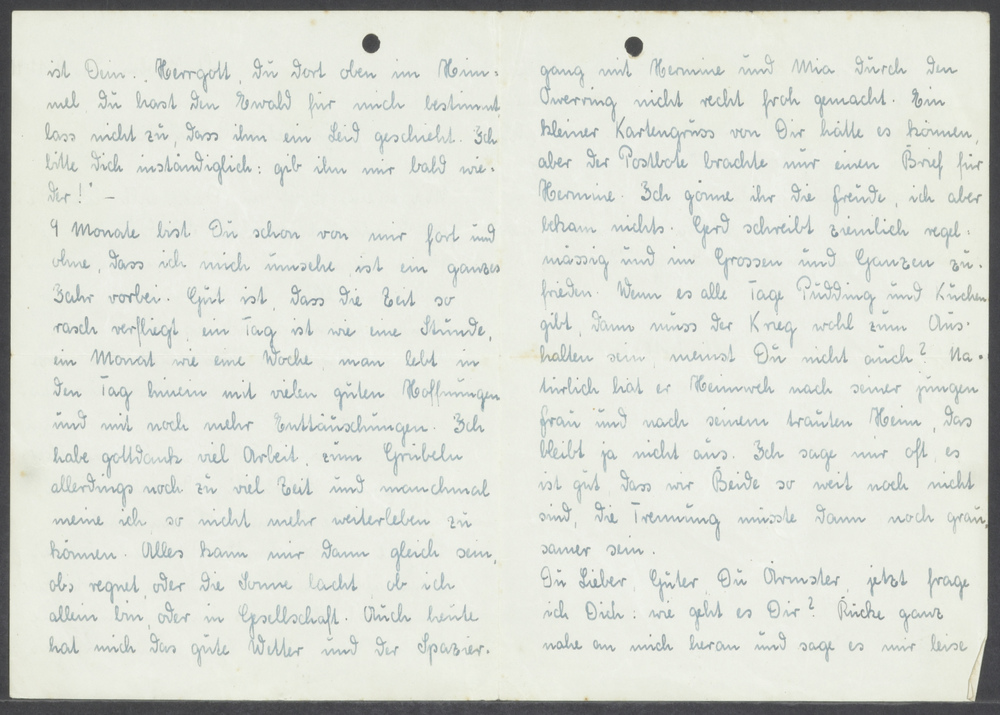 ist Dein. Herrgott, Du dort oben im Him-
mel Du hast den Ewald für mich bestimmt
lass nicht zu, dass ihm ein Leid geschieht. Ich
bitte Dich inständiglich: gib ihn mir bald wie-
der!" —
9 Monate bist Du schon von mir fort und
ohne, dass ich mich umsehe, ist ein ganzes
Jahr vorbei. Gut ist, dass die Zeit so
rasch verfliegt, ein Tag ist wie eine Stunde,
ein Monat wie eine Woche, man lebt in
den Tag hinein mit vielen guten Hoffnungen
und mit noch mehr Enttäuschungen. Ich
habe gottdank viel Arbeit, zum Grübeln
allerdings noch zu viel Zeit und manchmal
meine ich, so nicht mehr weiterleben zu
können. Alles kann mir dann gleich sein,
obs regnet, oder die Sonne lacht, ob ich
allein bin, oder in Gesellschaft. Auch heute
hat mich das gute Wetter und der Spazier-
gang mit Hermine und Mia durch den
Owerring nicht recht froh gemacht. Ein
kleiner Kartengruss von Dir hätte es können,
aber der Postbote brachte nur einen Brief für
Hermine. Ich gönne ihr die Freude, ich aber
bekam nichts. Gerd schreibt ziemlich regel-
mässig und im Grossen und Ganzen zu-
frieden. Wenn es alle Tage Pudding und Kuchen
gibt, dann muss der Krieg wohl zum Aus-
halten sein, meinst Du nicht auch? Na-
türlich hat er Heimweh nach seiner jungen
Frau und nach seinem trauten Heim, das
bleibt ja nicht aus. Ich sage mir oft, es
ist gut, dass wir Beide so weit noch nicht
sind, die Trennung müsste dann noch grau-
samer sein.
Du Lieber, Guter, Du Ärmster, jetzt frage
ich Dich: wie geht es Dir? Rücke ganz
nahe an mich heran und sage es mir leise